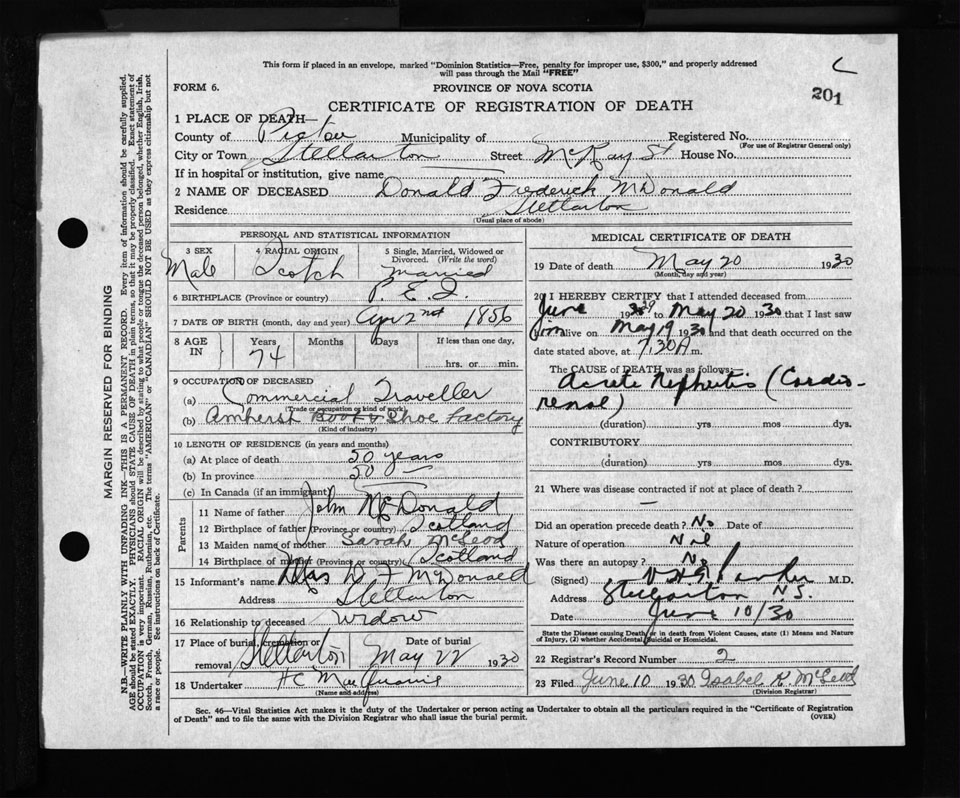 This form if placed in an envelope, marked "Dominion Statistics—Free, penalty for improper use, $300," and properly addressed
will pass through the Mail "FREE"
FORM 6.
PROVINCE OF NOVA SCOTIA
201
CERTIFICATE OF REGISTRATION OF DEATH
1 PLACE OF DEATH—
County of Pictou Municipality of Registered No.
(For use of Registrar General only)
City or Town Stellarton Street McKay St House No.
If in hospital or institution, give name
2 NAME OF DECEASED Donald Frederick McDonald
Residence Stellarton
(Usual place of abode)
PERSONAL AND STATISTICAL INFORMATION
3 SEX 4 RACIAL ORIGIN 5 Single, Married, Widowed or
Divorced. (Write the word)
Male Scotch Married
6 BIRTHPLACE (Province or country) P. E. I.
7 DATE OF BIRTH (month, day and year) Apr 2nd 1856
8 AGE IN Years Months Days If less than one day,
74 hrs. or min.
9 OCCUPATION OF DECEASED
(a) Commercial Traveller
(Trade or occupation or kind of work)
(b) Amherst Boot & Shoe Factory
(Kind of industry)
10 LENGTH OF RESIDENCE (in years and months)
(a) At place of death 50 years
(b) In province 50
(c) In Canada (if an immigrant)
Parents
11 Name of father John McDonald
12 Birthplace of father (Province or country) Scotland
13 Maiden name of mother Sarah McLeod
14 Birthplace of mother (Province or country) Scotland
15 Informant's name Mrs D F McDonald
Address Stellarton
16 Relationship to deceased widow
17 Place of burial, cremation or removal Stellarton Date of burial May 22 1930
18 Undertaker H C
(Name and address)
MEDICAL CERTIFICATE OF DEATH
19 Date of death May 20 1930
(Month, day and year)
20 I HEREBY CERTIFY that I attended deceased from
June 19 to May 20 1930 that I last saw
him alive on May 19 1930 and that death occurred on the
date stated above, at 7.30 A m.
The CAUSE of DEATH was as follows:—
Acute Nephritis (Cardio-
renal)
(duration) yrs mos dys.
CONTRIBUTORY
(duration) yrs mos dys.
21 Where was disease contracted if not at place of death?
—
Did an operation precede death? No Date of
Nature of operation Nil
Was there an autopsy? No
(Signed) M.D.
Address Stellarton N.S.
Date June 10/30
State the Disease causing Death, or in death from Violent Causes, state (1) Means and Nature
of Injury, (2) whether Accidental, Suicidal or Homicidal.
22 Registrar's Record Number 2
23 Filed June 10 1930 Isabel K. McLeod
(Division Registrar)
Sec. 46—Vital Statistics Act makes it the duty of the Undertaker or person acting as Undertaker to obtain all the particulars required in the "Certificate of Registration
of Death" and to file the same with the Division Registrar who shall issue the burial permit.
(OVER)
MARGIN RESERVED FOR BINDING
N.B.—WRITE PLAINLY WITH UNFADING INK—THIS IS A PERMANENT RECORD. Every item of information should be carefully supplied.
AGE should be stated EXACTLY. PHYSICIANS should STATE CAUSE OF DEATH in plain terms, so that it may be properly classified. Exact statement of
OCCUPATION is very important. RACIAL ORIGIN will be described by stating to what people or tongue the deceased person belonged, whether English, Irish,
Scotch, French, German, Russian, Ruthenian, etc. The terms "AMERICAN" or "CANADIAN" SHOULD NOT BE USED as they express citizenship but not
a race or people. See instructions on back of Certificate.